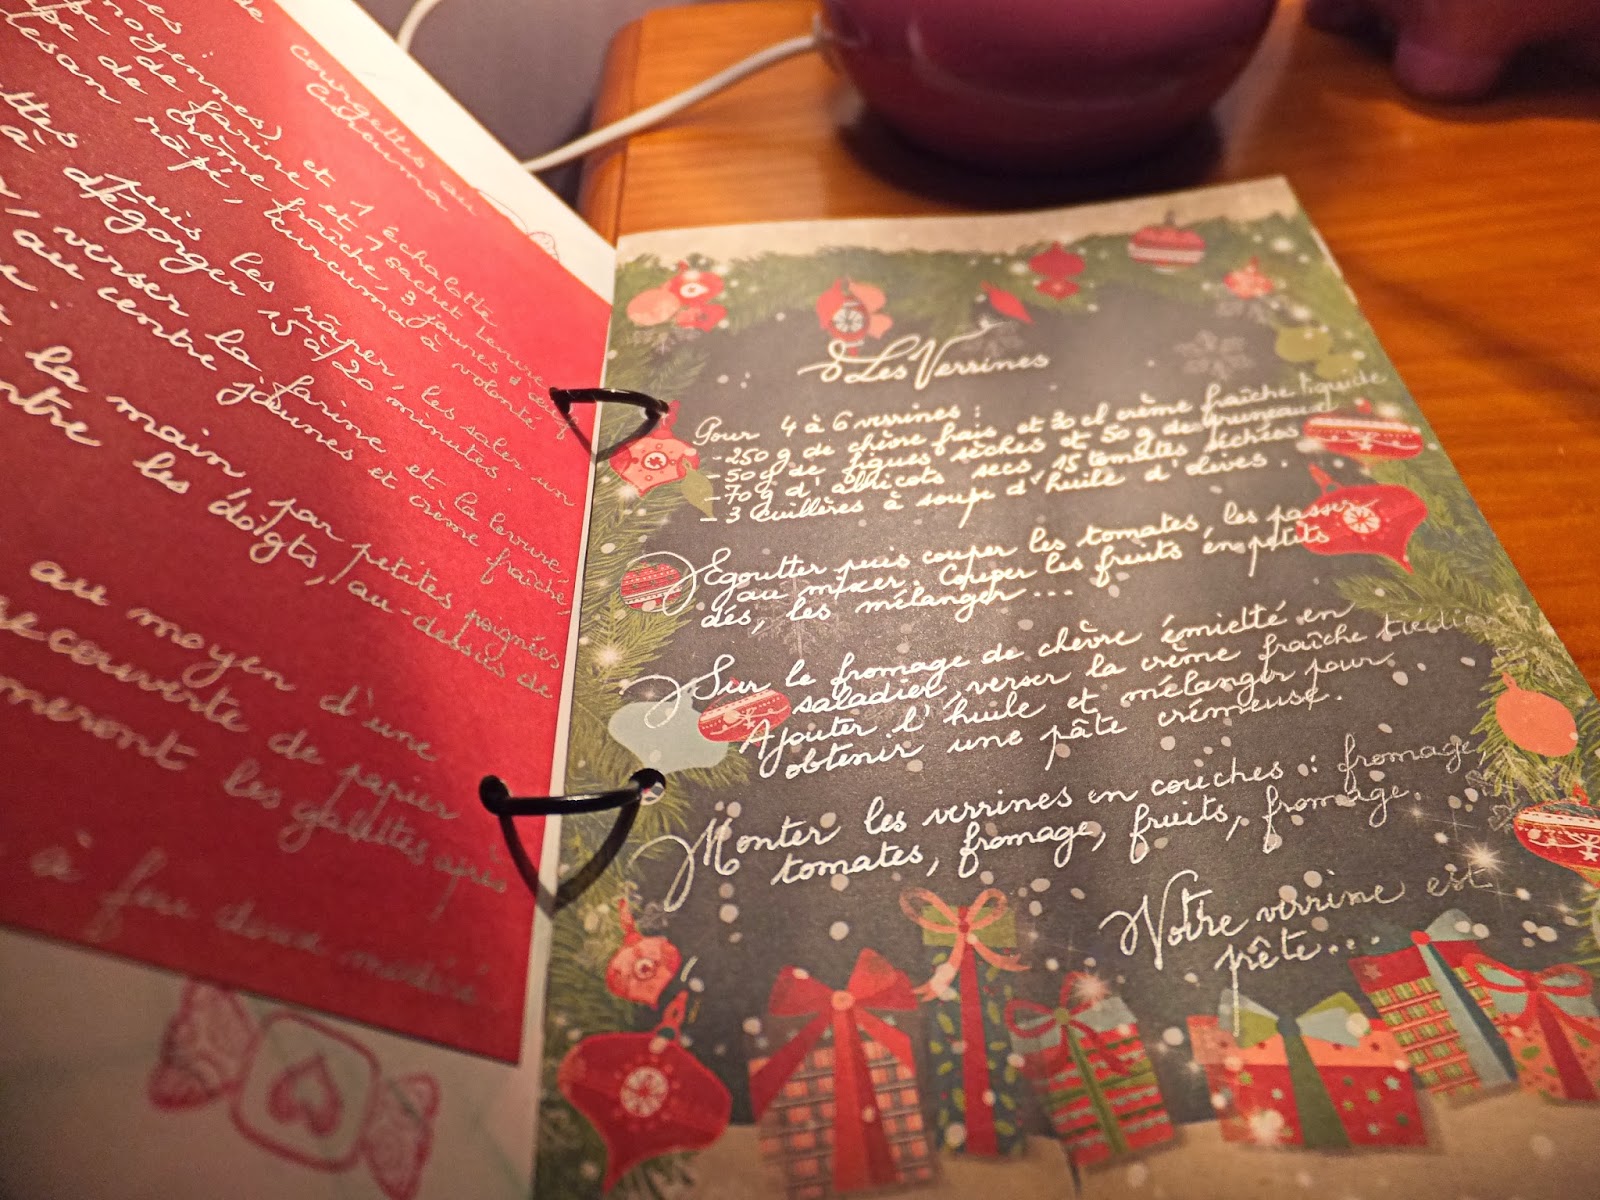 de
courgettes au
Curcuma
moyennes)
de farine et 1 échalotte
de crème fraîche, 3 jaunes d'œuf
râpé, curcuma à volonté
puis les râper, les saler un
à dégorger 15 à 20 minutes.
verser la farine et la levure,
au centre jaunes et crème fraîche,
la main, par petites poignées
les doigts, au-dessus de
au moyen d'une
recouverte de papier
les galettes après
à four doux
Les Verrines
Pour 4 à 6 verrines :
- 250 g de chèvre frais et 30 cl crème fraîche liquide
- 50 g de figues sèches et 50 g de pruneaux
- 70 g d'abricots secs, 15 tomates séchées
- 3 cuillères à soupe d'huile d'olives.
Egoutter puis couper les tomates, les passer
au mixer. Couper les fruits en petits
dés, les mélanger...
Sur le fromage de chèvre émietté en
saladier, verser la crème fraîche tiédie
Ajouter l'huile et mélanger pour
obtenir une pâte crémeuse.
Monter les verrines en couches : fromage,
tomates, fromage, fruits, fromage.
Votre verrine est
prête...